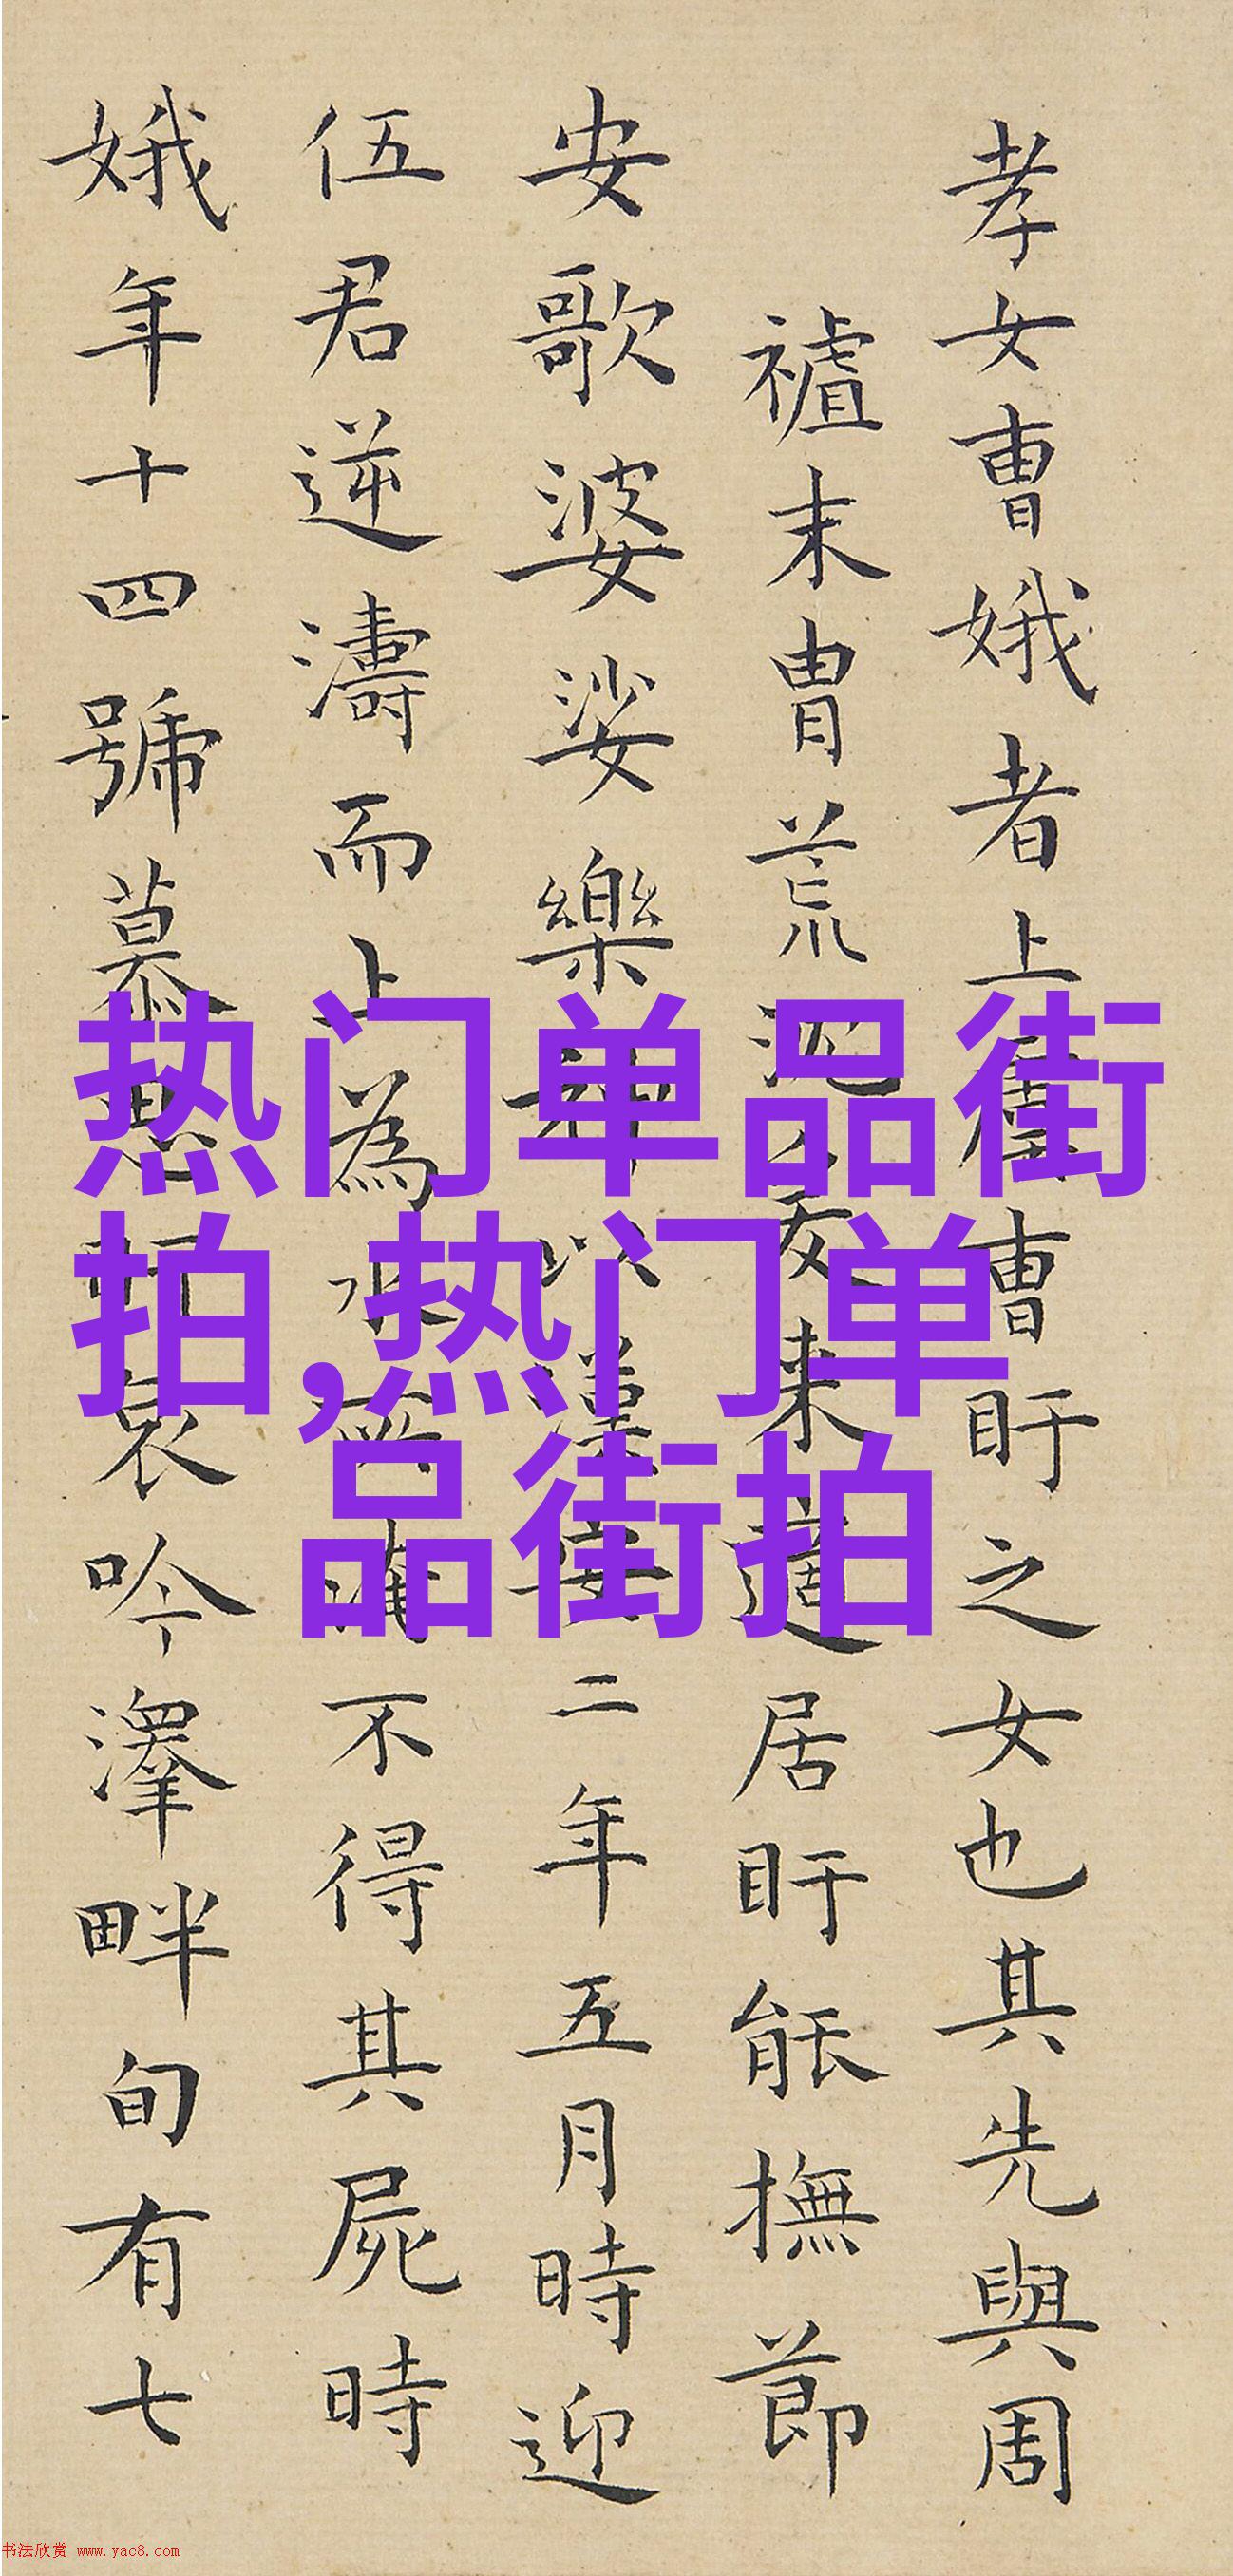 孝女曹娥者上虞曹盱之女也其先與周
禇末胄荒沈爰来適居盱能撫節
安歌婆娑樂神以漢安二年五月時迎
伍君逆濤而上為水所淹不得其屍時
娥年十四號慕思盱哀吟澤畔旬有七
热门单品街
拍,热门单
品街拍
书法欣赏 www.yac8.com